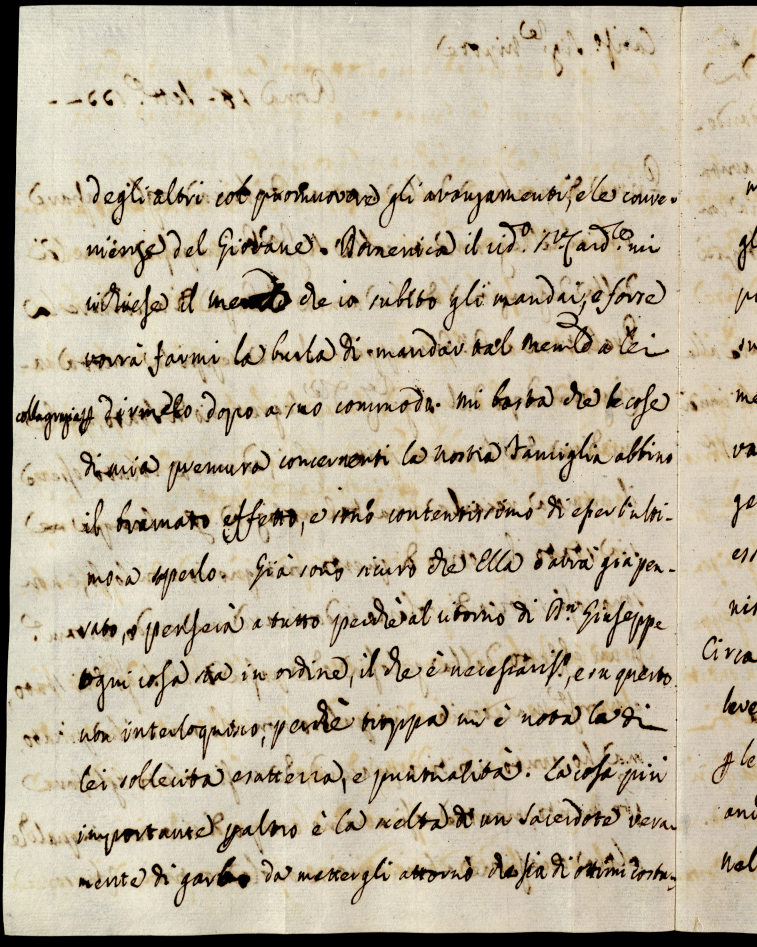 degli altri col promuovere gli avanzamenti, e le conve-
nienze del Giovane. Domenica il sud.o Sig.r Card.le mi
richiese il che io subito gli mandai, e forse
vorrà farmi la burla di mandar tal mem.le a lei
colla grazia di dirmelo dopo a suo commodo. mi basta che le cose
di mia premura concernenti la nostra Famiglia abbino
il bramato effetto, e sono contentissimo di esser l'ulti-
mo a saperlo. Già sono sicuro che Ella havrà già pen-
sato, e penserà a tutto perchè al ritorno di D.n Giuseppe
ogni cosa sia in ordine, il che è necessariss.o, e su questo
non interloquisco, perchè troppa mi è nota la di
lei sollecita esattezza, e puntualità. La cosa più
importante p altro è la scelta di un Sacerdote vera-
mente di garbo da mettergli attorno che sia di ottimi costu-
Circa